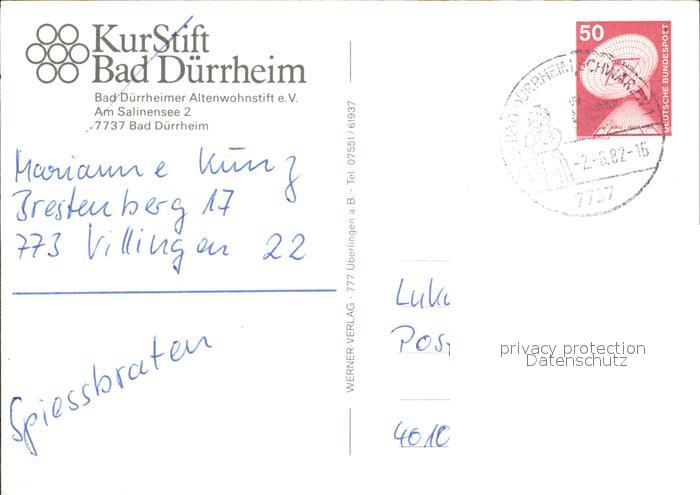 KurStift
Bad Dürrheim
Bad Dürrheimer Altenwohnstift e.V.
Am Salinensee 2
7737 Bad Dürrheim
Marianne Kunz
Brestenberg 17
773 Villingen 22
Spiessbraten
WERNER-VERLAG · 777 Überlingen a. B. · Tel. 07551/61937
50
DEUTSCHE BUNDESPOST
BAD DÜRRHEIM
-2.-6.82-16
7737
Luk
Pos
4010
privacy protection
Datenschutz